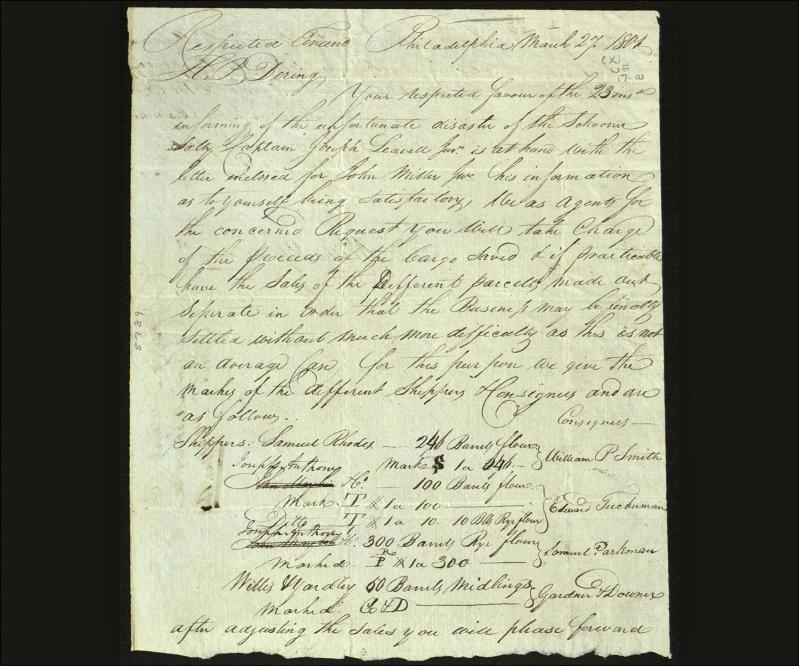 Respected Friend Philadelphia March 27 1804
H. P. Dering
Your respected favour of the 23 ins
informing of the unfortunate disaster of the Schooner
Sally Captain Joseph Leavitt Junr. is at hand with the
letter enclosed for John Miller Junr his information
as to yourself being satisfactory, We as Agents for
the concerned Request you Will take Charge
of the Proceeds of the Cargo Saved & if practicable
have the Sales of the Different parcels made out
Seperate in order that the Business may be finally
Settled without much more difficulty as this is not
an average Case for this purpose we give the
Marks of the different Shippers & Consigners and are
as follows..
Consigners —
Shippers: Samuel Rhodes — 246 Barrels flour
Mark S 1 a 246 — William P Smith
Joseph Anthony
100 Barrels flour
Mark T 1 a 100 —
Edward Tuckerman
Ditto T 1 a 10 10 Bls Rye flour
Joseph Anthony
300 Barrels Rye flour
Samuel Parkman
Marked P 1 a 300 —
Willis & Yardley 60 Barrels Midlings
Gardner & Downer
Marked G&D —
after adjusting the Sales you will please forward
57.89